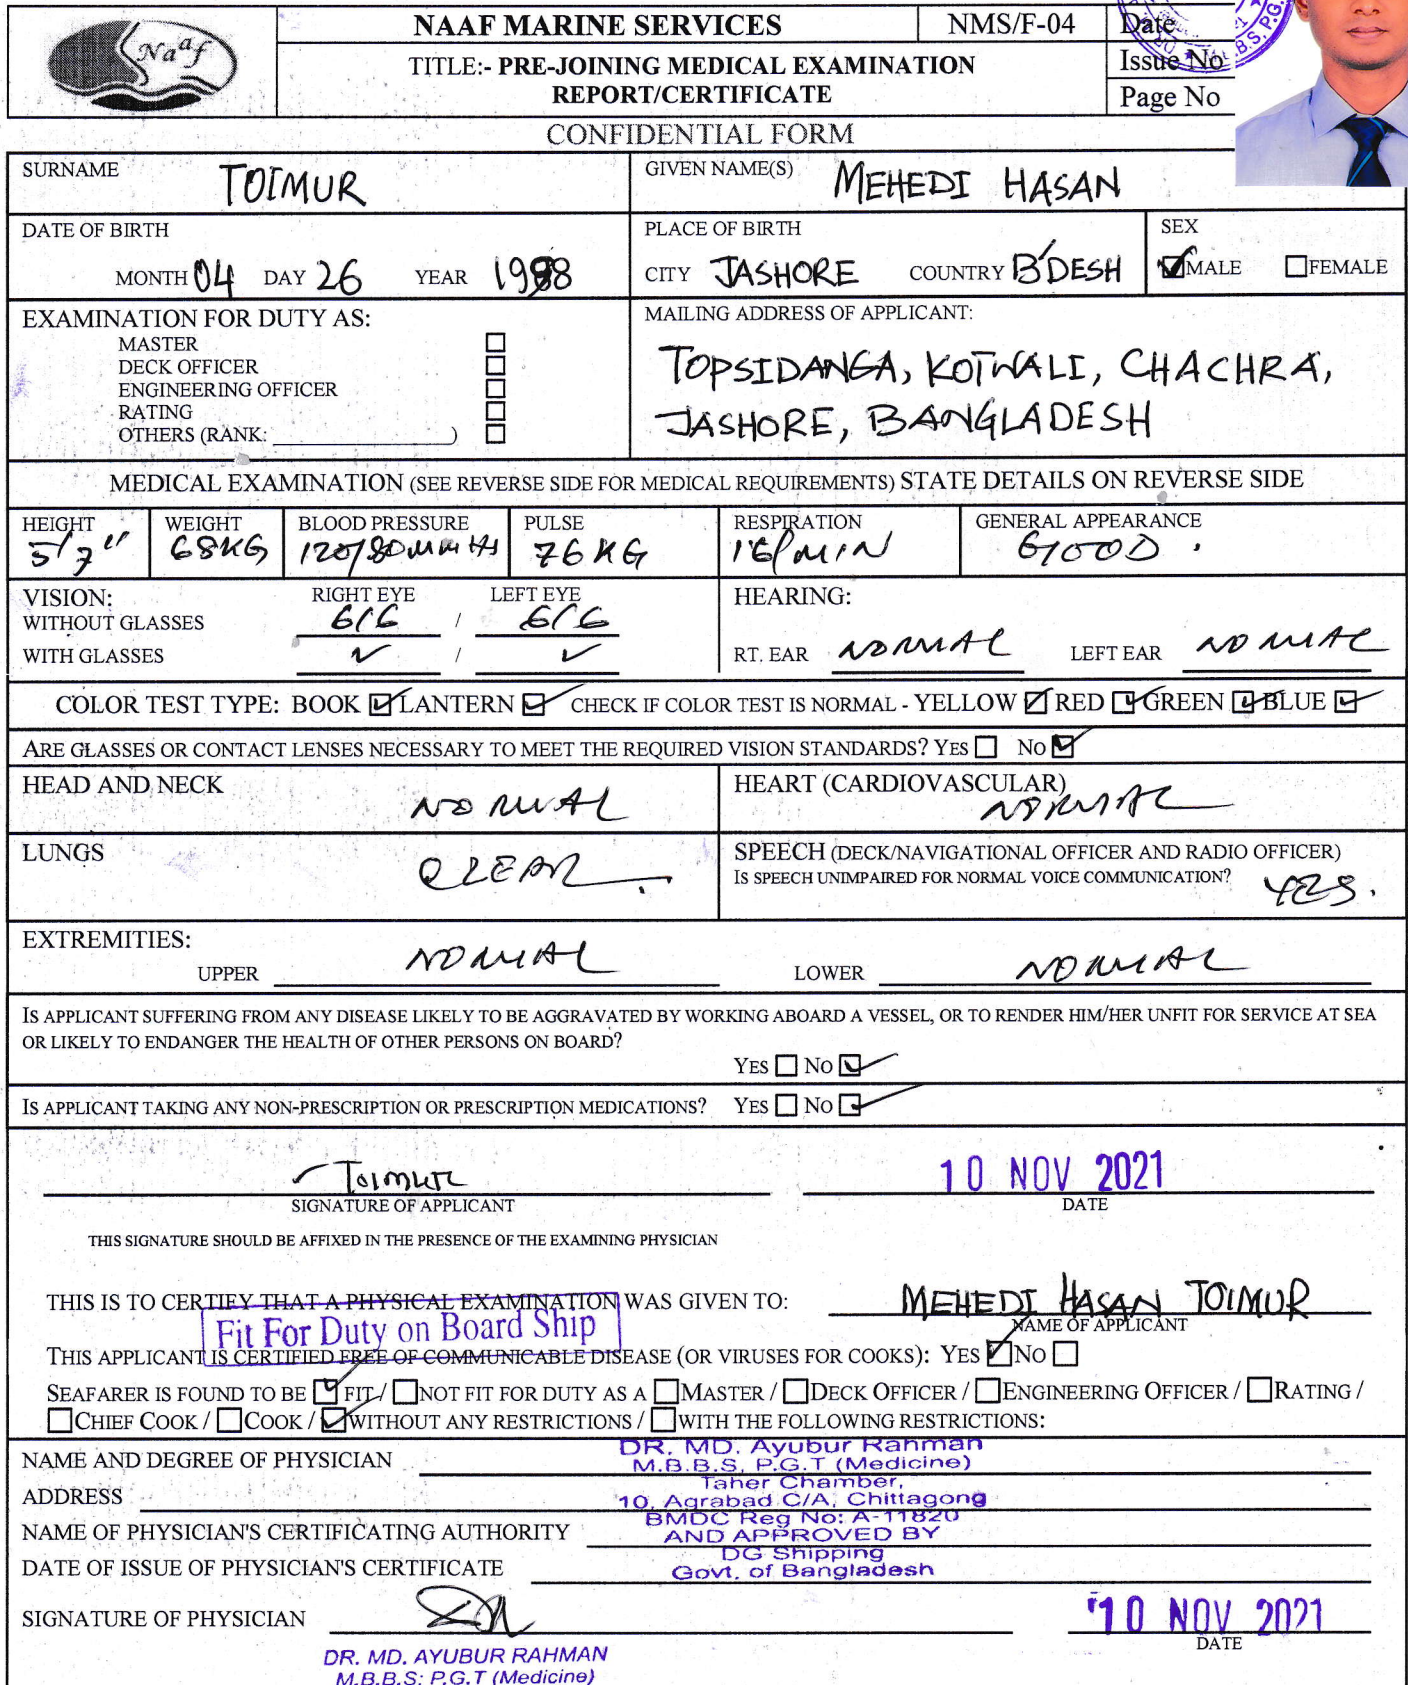 Naaf
NAAF MARINE SERVICES
NMS/F-04
Date
TITLE:- PRE-JOINING MEDICAL EXAMINATION
REPORT/CERTIFICATE
Issue No
Page No
CONFIDENTIAL FORM
SURNAME TOIMUR
GIVEN NAME(S) MEHEDI HASAN
DATE OF BIRTH
MONTH 04 DAY 26 YEAR 1988
PLACE OF BIRTH
CITY JASHORE COUNTRY B'DESH
SEX
MALE FEMALE
EXAMINATION FOR DUTY AS:
MASTER
DECK OFFICER
ENGINEERING OFFICER
RATING
OTHERS (RANK: )
MAILING ADDRESS OF APPLICANT:
TOPSIDANGA, KOTWALI, CHACHRA,
JASHORE, BANGLADESH
MEDICAL EXAMINATION (SEE REVERSE SIDE FOR MEDICAL REQUIREMENTS) STATE DETAILS ON REVERSE SIDE
HEIGHT 5'7"
WEIGHT 68KG
BLOOD PRESSURE 120/80mmHg
PULSE 76 KG
RESPIRATION 16/MIN
GENERAL APPEARANCE GOOD.
VISION: RIGHT EYE LEFT EYE
WITHOUT GLASSES 6/6 / 6/6
WITH GLASSES /
HEARING:
RT. EAR NORMAL LEFT EAR NORMAL
COLOR TEST TYPE: BOOK LANTERN CHECK IF COLOR TEST IS NORMAL - YELLOW RED GREEN BLUE
ARE GLASSES OR CONTACT LENSES NECESSARY TO MEET THE REQUIRED VISION STANDARDS? YES NO
HEAD AND NECK NORMAL
HEART (CARDIOVASCULAR) NORMAL
LUNGS CLEAR.
SPEECH (DECK/NAVIGATIONAL OFFICER AND RADIO OFFICER)
IS SPEECH UNIMPAIRED FOR NORMAL VOICE COMMUNICATION? YES.
EXTREMITIES:
UPPER NORMAL LOWER NORMAL
IS APPLICANT SUFFERING FROM ANY DISEASE LIKELY TO BE AGGRAVATED BY WORKING ABOARD A VESSEL, OR TO RENDER HIM/HER UNFIT FOR SERVICE AT SEA
OR LIKELY TO ENDANGER THE HEALTH OF OTHER PERSONS ON BOARD?
YES NO
IS APPLICANT TAKING ANY NON-PRESCRIPTION OR PRESCRIPTION MEDICATIONS? YES NO
Toimur 10 NOV 2021
SIGNATURE OF APPLICANT DATE
THIS SIGNATURE SHOULD BE AFFIXED IN THE PRESENCE OF THE EXAMINING PHYSICIAN
THIS IS TO CERTIFY THAT A PHYSICAL EXAMINATION WAS GIVEN TO: MEHEDI HASAN TOIMUR
NAME OF APPLICANT
Fit For Duty on Board Ship
THIS APPLICANT IS CERTIFIED FREE OF COMMUNICABLE DISEASE (OR VIRUSES FOR COOKS): YES NO
SEAFARER IS FOUND TO BE FIT / NOT FIT FOR DUTY AS A MASTER / DECK OFFICER / ENGINEERING OFFICER / RATING /
CHIEF COOK / COOK / WITHOUT ANY RESTRICTIONS / WITH THE FOLLOWING RESTRICTIONS:
DR. MD. Ayubur Rahman
NAME AND DEGREE OF PHYSICIAN M.B.B.S, P.G.T (Medicine)
Taher Chamber,
ADDRESS 10, Agrabad C/A, Chittagong
BMDC Reg No: A-11820
NAME OF PHYSICIAN'S CERTIFICATING AUTHORITY AND APPROVED BY
DG Shipping
DATE OF ISSUE OF PHYSICIAN'S CERTIFICATE Govt. of Bangladesh
SIGNATURE OF PHYSICIAN 10 NOV 2021
DATE
DR. MD. AYUBUR RAHMAN
M.B.B.S; P.G.T (Medicine)